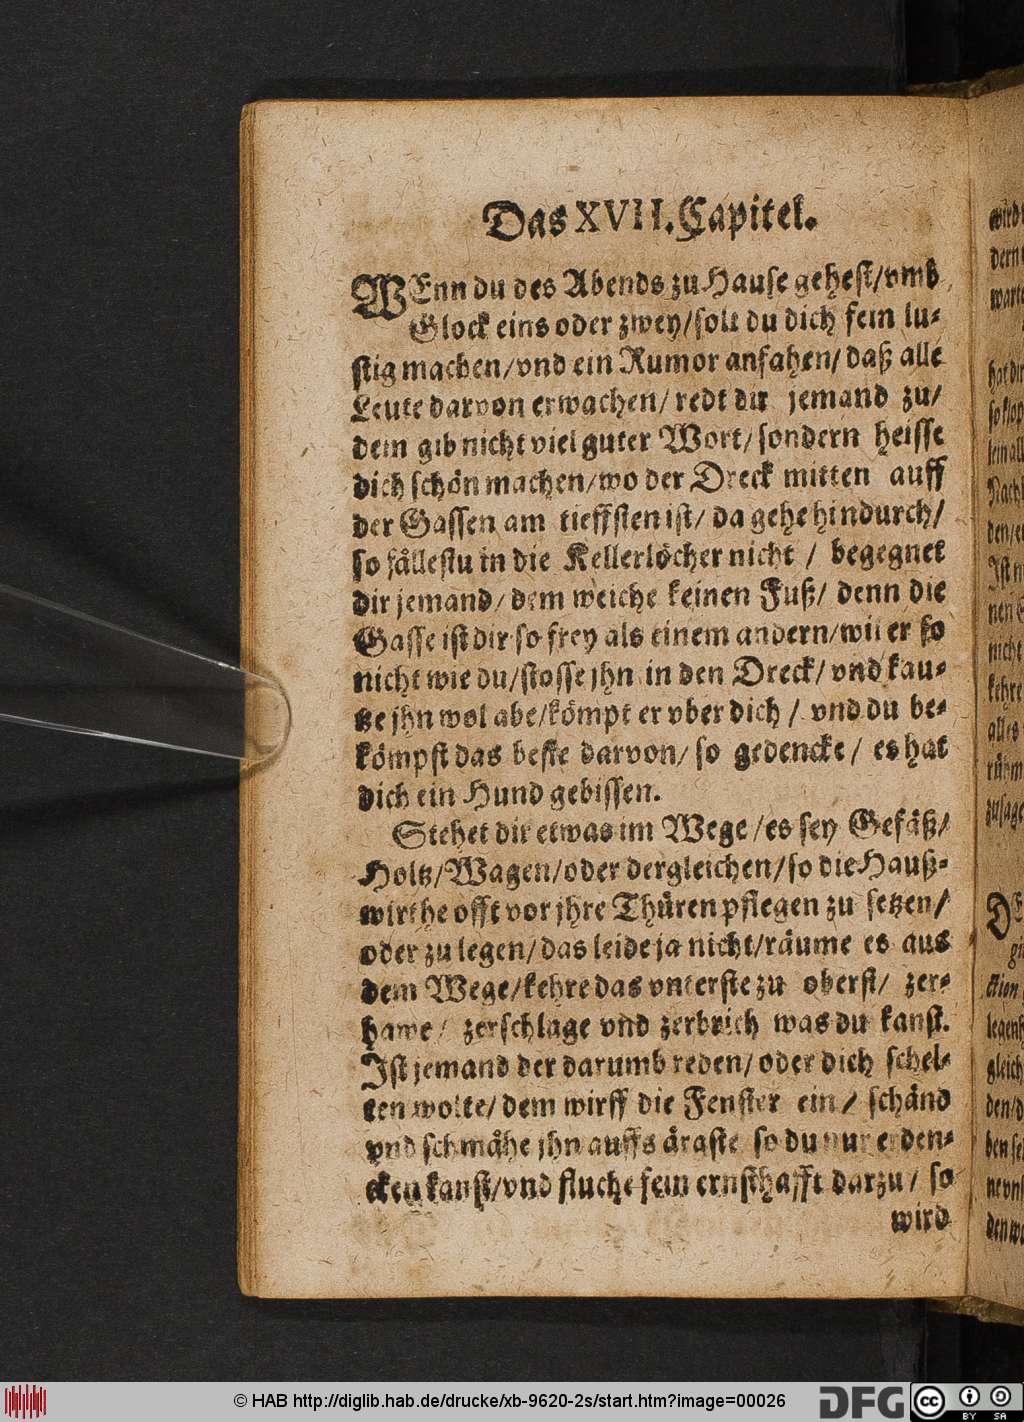 Das XVII. Capitel.
WEnn du des Abends zu Hause gehest/ vmb
Glock eins oder zwey/ solt du dich fein lu-
stig machen/ vnd ein Rumor anfahen/ daß alle
Leute darvon erwachen/ redt dir jemand zu/
dem gib nicht viel guter Wort/ sondern heisse
dich schön machen/ wo der Dreck mitten auff
der Gassen am tieffsten ist/ da gehe hindurch/
so fällestu in die Kellerlöcher nicht / begegnet
dir jemand/ dem weiche keinen Fuß/ denn die
Gasse ist dir so frey als einem andern/ wil er so
nicht wie du/ stosse jhn in den Dreck/ vnd kau-
tze jhn wol abe/ kömpt er vber dich / vnd du be-
kömpst das beste darvon/ so gedencke / es hat
dich ein Hund gebissen.
Stehet dir etwas im Wege / es sey Gefäß/
Holtz/ Wagen/ oder dergleichen/ so die Hauß-
wirthe offt vor jhre Thüren pflegen zu setzen/
oder zu legen/ das leide ja nicht/ räume es aus
dem Wege/ kehre das vnterste zu oberst/ zer-
hawe / zerschlage vnd zerbrich was du kanst.
Ist jemand der darumb reden/ oder dich schel-
ten wolte/ dem wirff die Fenster ein / schänd
vnd schmähe jhn auffs ärgste so du nur erden-
cken kanst/ vnd fluche fein ernsthafft darzu / so
wird
© HAB http://diglib.hab.de/drucke/xb-9620-2s/start.htm?image=00026
DFG
cc
BY
SA